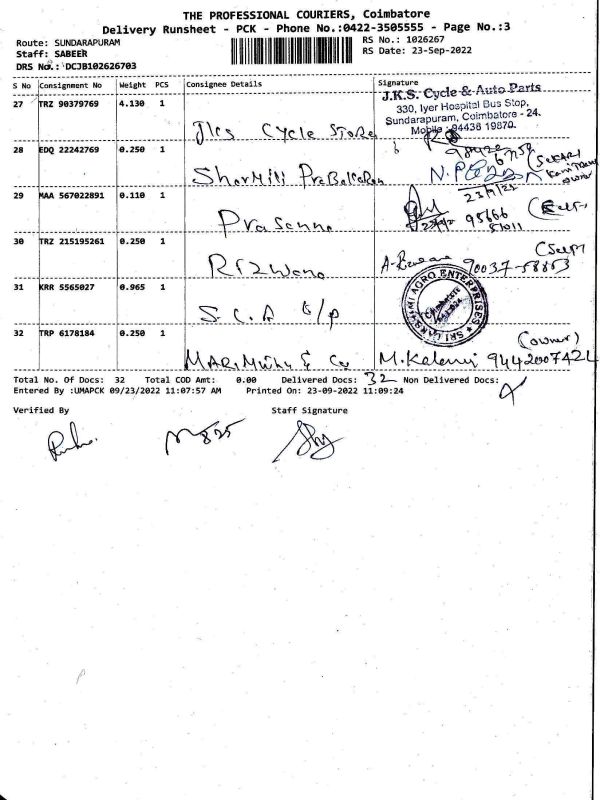 THE PROFESSIONAL COURIERS, Coimbatore
Delivery Runsheet - PCK - Phone No.:0422-3505555 - Page No.:3
Route: SUNDARAPURAM
Staff: SABEER
DRS No.: DCJB102626703
RS No.: 1026267
RS Date: 23-Sep-2022
S No Consignment No Weight PCS Consignee Details Signature
27 TRZ 90379769 4.130 1 Jks Cycle Store
J.K.S. Cycle & Auto Parts
330, Iyer Hospital Bus Stop,
Sundarapuram, Coimbatore - 24.
Mobile : 94436 19870.
28 EDQ 22242769 0.250 1 Sharmili Prabakaran
29 MAA 567022891 0.110 1 Prasanna
23/9/22 95666
30 TRZ 215195261 0.250 1 Rizwana
90037-58853
31 KRR 5565027 0.965 1 S.C.A
SRI LAKSHMI AGRO ENTERPRISES
32 TRP 6178184 0.250 1 MARIMuthu & Co M.Kalami 9442007424
(owner)
Total No. Of Docs: 32 Total COD Amt: 0.00 Delivered Docs: 32 Non Delivered Docs:
Entered By :UMAPCK 09/23/2022 11:07:57 AM Printed On: 23-09-2022 11:09:24
Verified By Staff Signature